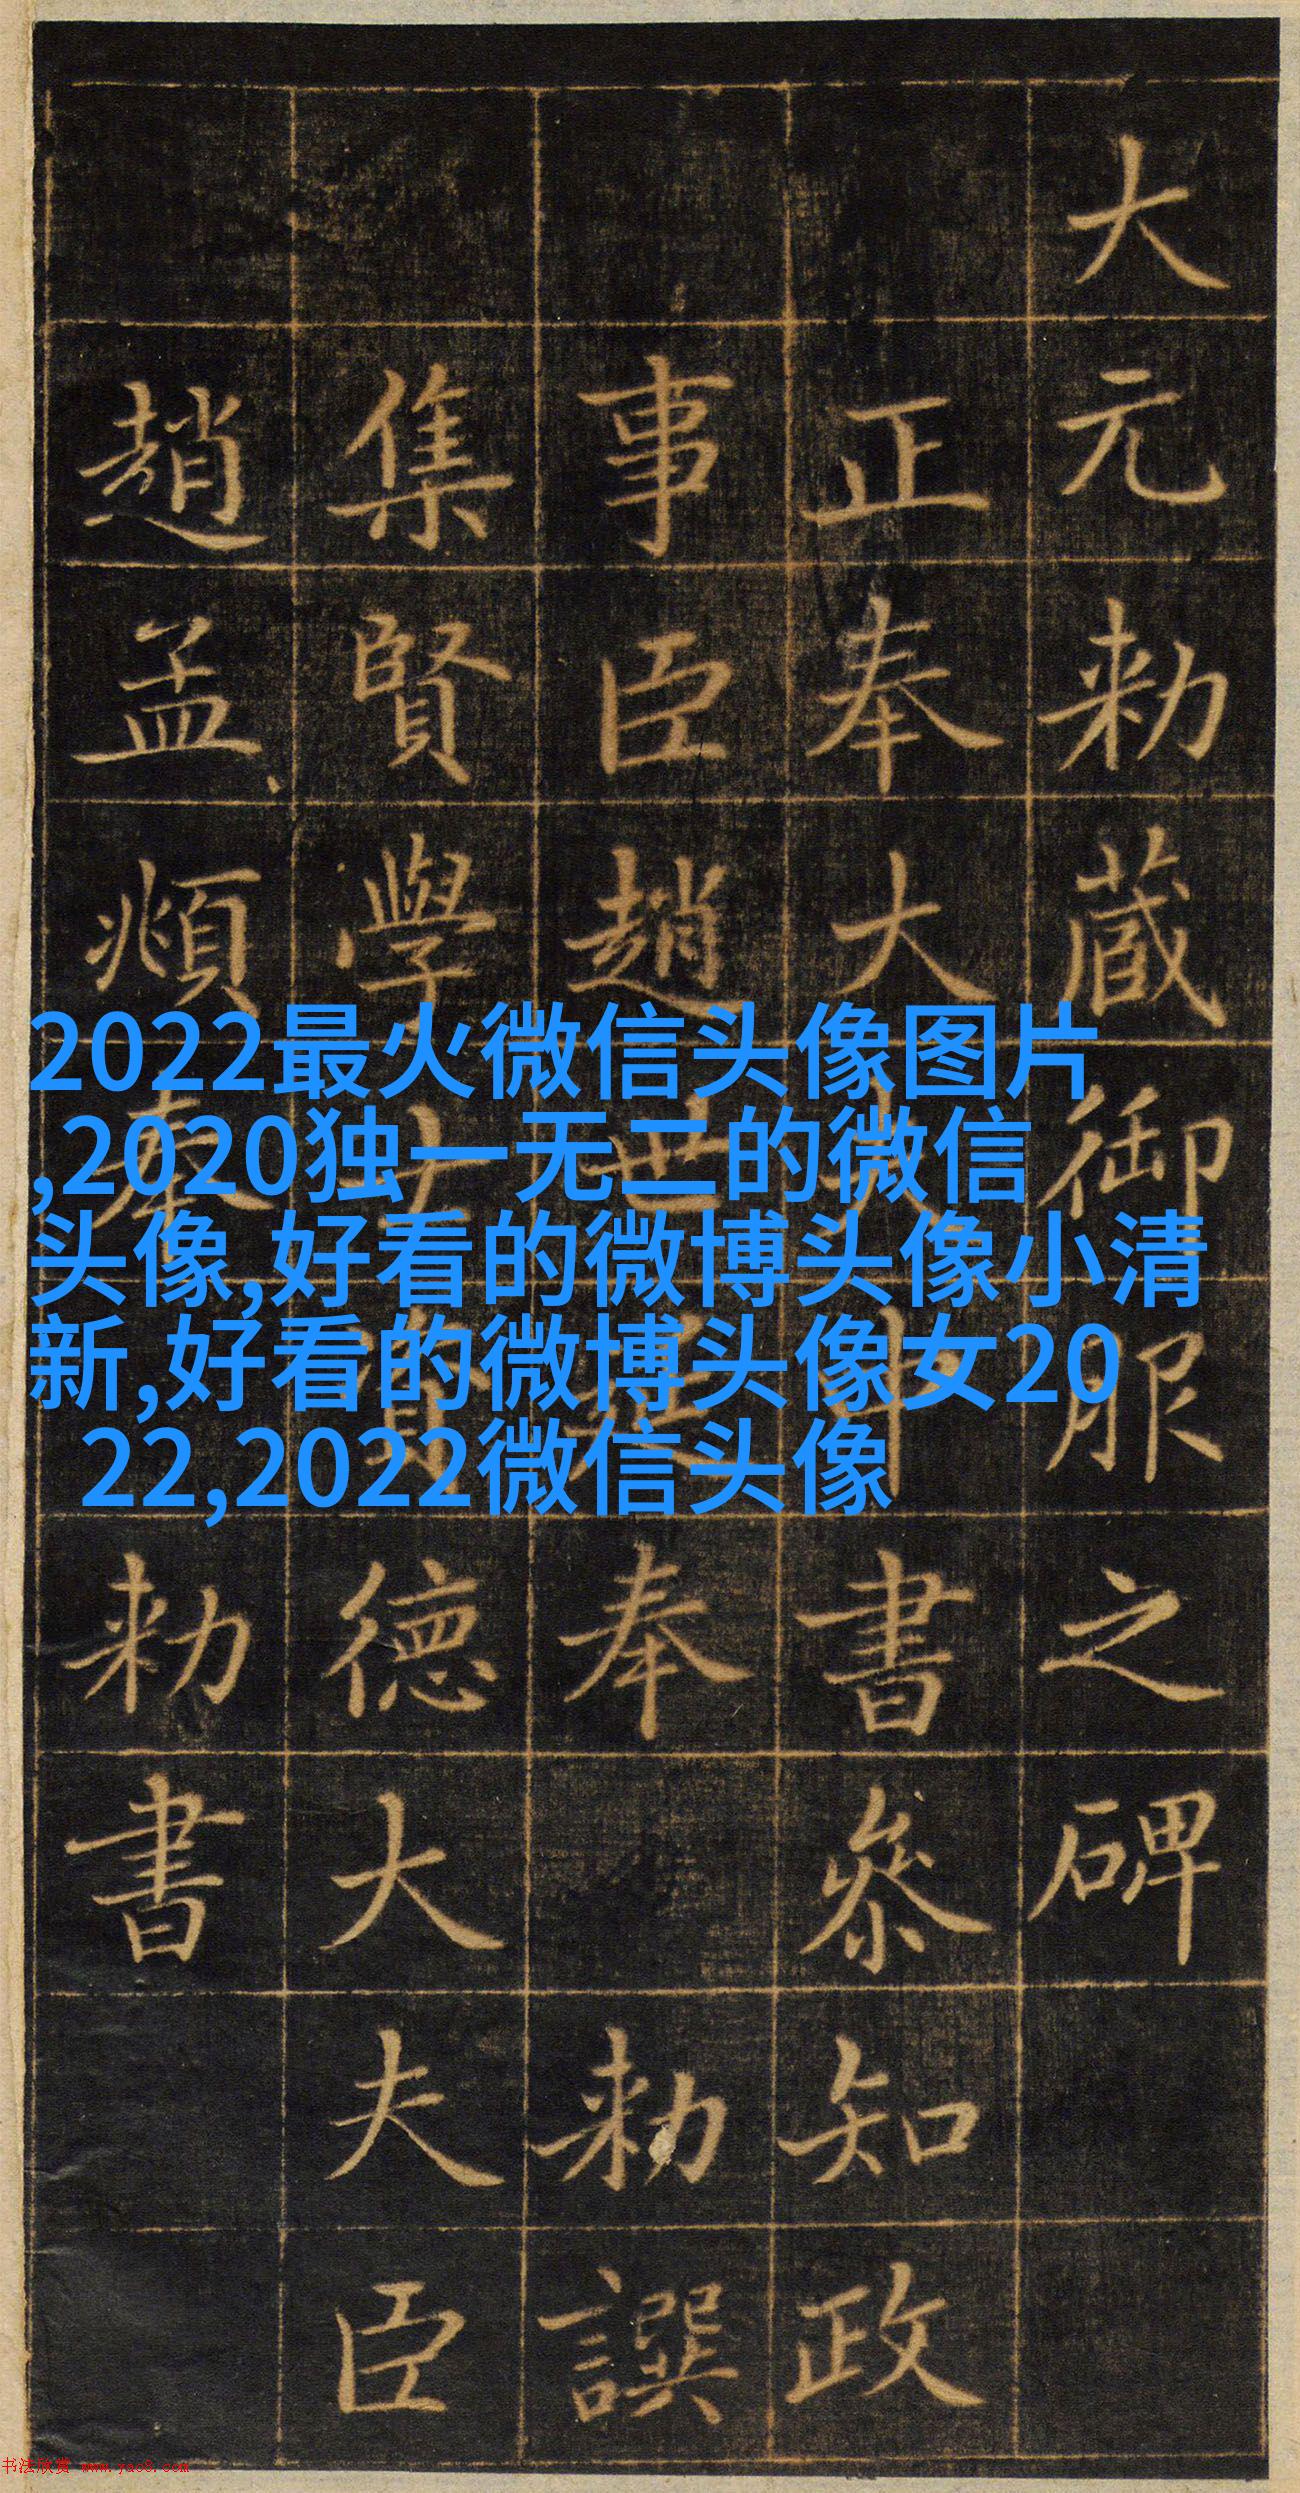 大元勅蔵御服之碑
正奉大夫中書叅知政
事臣趙世延奉 勅譔
集賢學士資德大夫臣
趙孟頫奉 勅書
2022最火微信头像图片
,2020独一无二的微信
头像,好看的微博头像小清
新,好看的微博头像女20
22,2022微信头像
书法欣赏 www.yac8.com